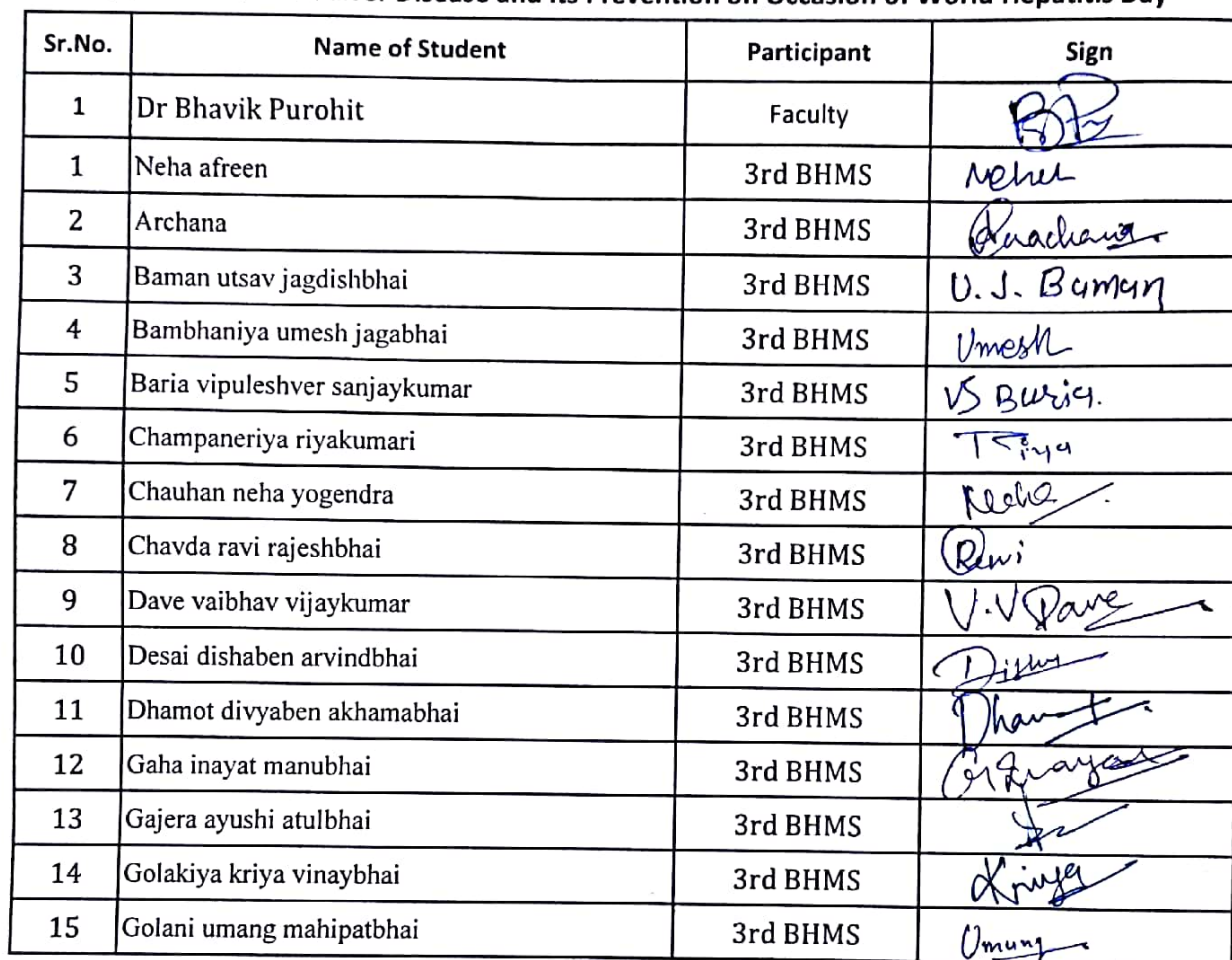 Disease and its Prevention on Occasion of World Hepatitis Day
Sr.No. Name of Student Participant Sign
1 Dr Bhavik Purohit Faculty
1 Neha afreen 3rd BHMS Neha
2 Archana 3rd BHMS
3 Baman utsav jagdishbhai 3rd BHMS U. J. Baman
4 Bambhaniya umesh jagabhai 3rd BHMS Umesh
5 Baria vipuleshver sanjaykumar 3rd BHMS VS Baria.
6 Champaneriya riyakumari 3rd BHMS Riya
7 Chauhan neha yogendra 3rd BHMS Neha
8 Chavda ravi rajeshbhai 3rd BHMS Ravi
9 Dave vaibhav vijaykumar 3rd BHMS V.V Dave
10 Desai dishaben arvindbhai 3rd BHMS
11 Dhamot divyaben akhamabhai 3rd BHMS
12 Gaha inayat manubhai 3rd BHMS
13 Gajera ayushi atulbhai 3rd BHMS
14 Golakiya kriya vinaybhai 3rd BHMS Kriya
15 Golani umang mahipatbhai 3rd BHMS Umang